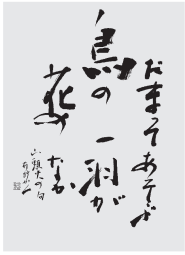 だまつてあそぶ
鳥の一羽が
花のなか
山頭火の句